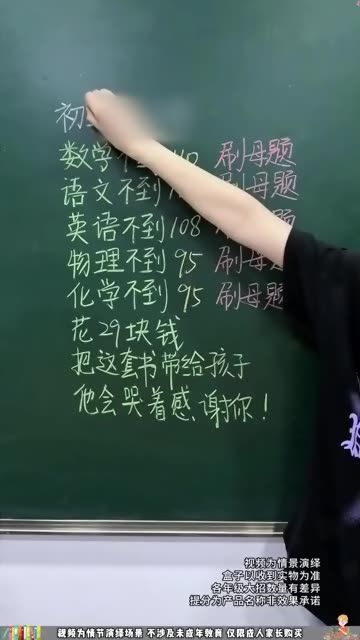 初
数学不到 刷母题
语文不到1 刷母题
英语不到108 刷母题
物理不到95 刷母题
化学不到95 刷母题
花29块钱
把这套书带给孩子
他会哭着感谢你！
视频为情景演绎
盒子以收到实物为准
各年级大招数量有差异
提分为产品名称非效果承诺
视频为情节演绎场景 不涉及未成年教育 仅限成人家长购买